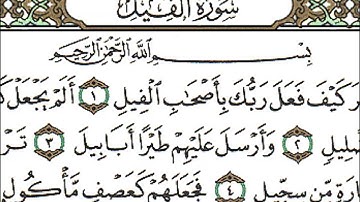 سُورَةُ الفِيلِ
بِسْمِ اللَّهِ الرَّحْمَٰنِ الرَّحِيمِ
رَ كَيْفَ فَعَلَ رَبُّكَ بِأَصْحَٰبِ الْفِيلِ ١ أَلَمْ يَجْعَلْ كَ
ضْلِيلٍ ٢ وَأَرْسَلَ عَلَيْهِمْ طَيْرًا أَبَابِيلَ ٣ تَرْ
ارَةٍ مِّن سِجِّيلٍ ٤ فَجَعَلَهُمْ كَعَصْفٍ مَّأْكُولٍ